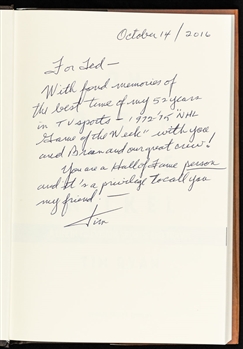 October 14/2016
For Ted —
With fond memories of
the best time of my 52 years
in TV sports – 1972-75 "NHL
Game of the Week" with you
and Brian and our great crew!
You are a Hall of Fame person
and it's a privilege to call you
my friend! —
Tim